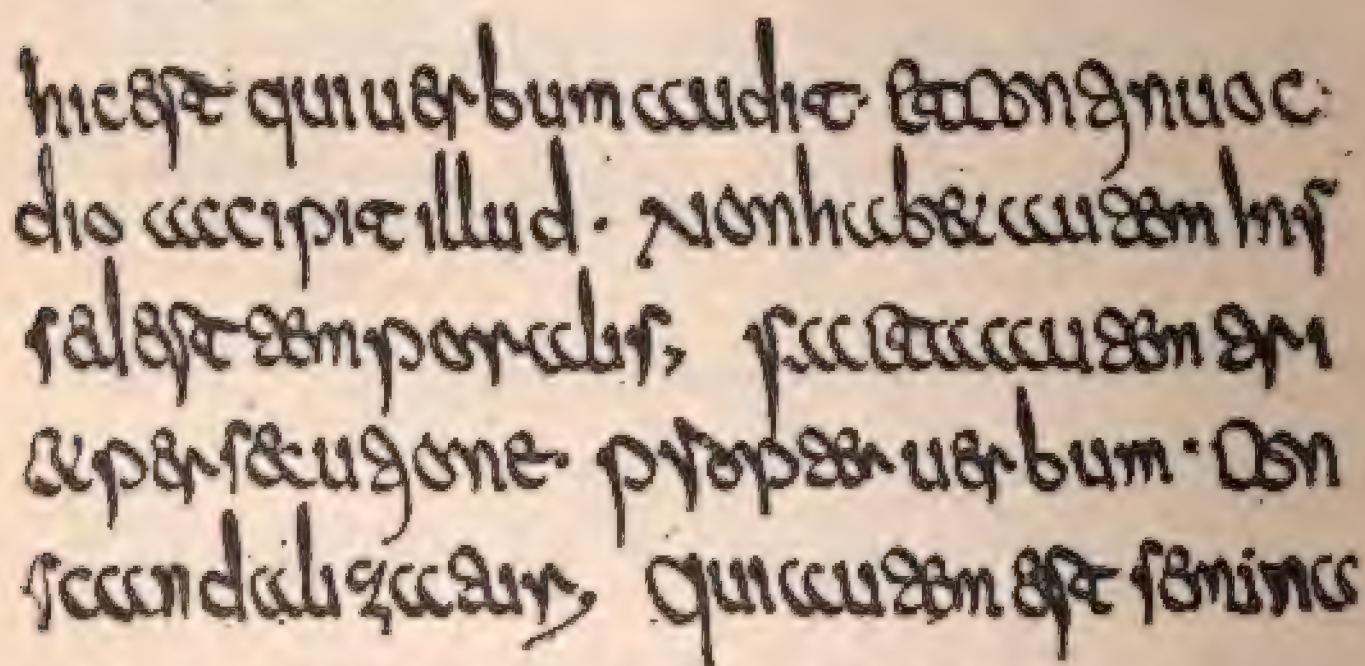 hicest quiuerbum audit etcontinuo c
dio accipit illud · Non habet autem Ins
sed est temporalis, facta autem tri
et persecutione propter uerbum · Con
scandalizatur, quiautem est semina